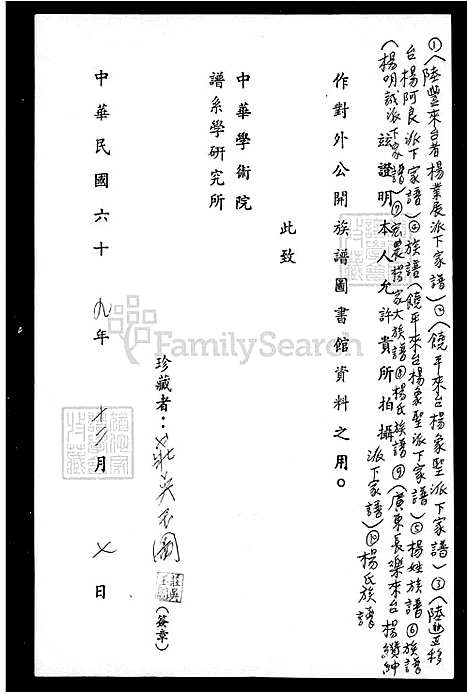 ①(陸豐來台者楊業展派下家譜)②(饒平來台楊象堅派下家譜)③(陸遷移
台楊阿良派下家譜)④族譜(饒平來台楊象堅派下家譜)⑤楊姓族譜⑥族譜
(楊明誠派下家譜)⑦宏農楊家大族譜⑧楊氏族譜⑨(廣東長樂來台楊纘紳
派下家譜)⑩楊氏族譜
茲證明本人允許貴所拍攝
作對外公開族譜圖書館資料之用。
此致
中華學術院
譜系學研究所
珍藏者:莊吳玉圖
(簽章)
中華民國六十九年十二月七日
FamilySearch